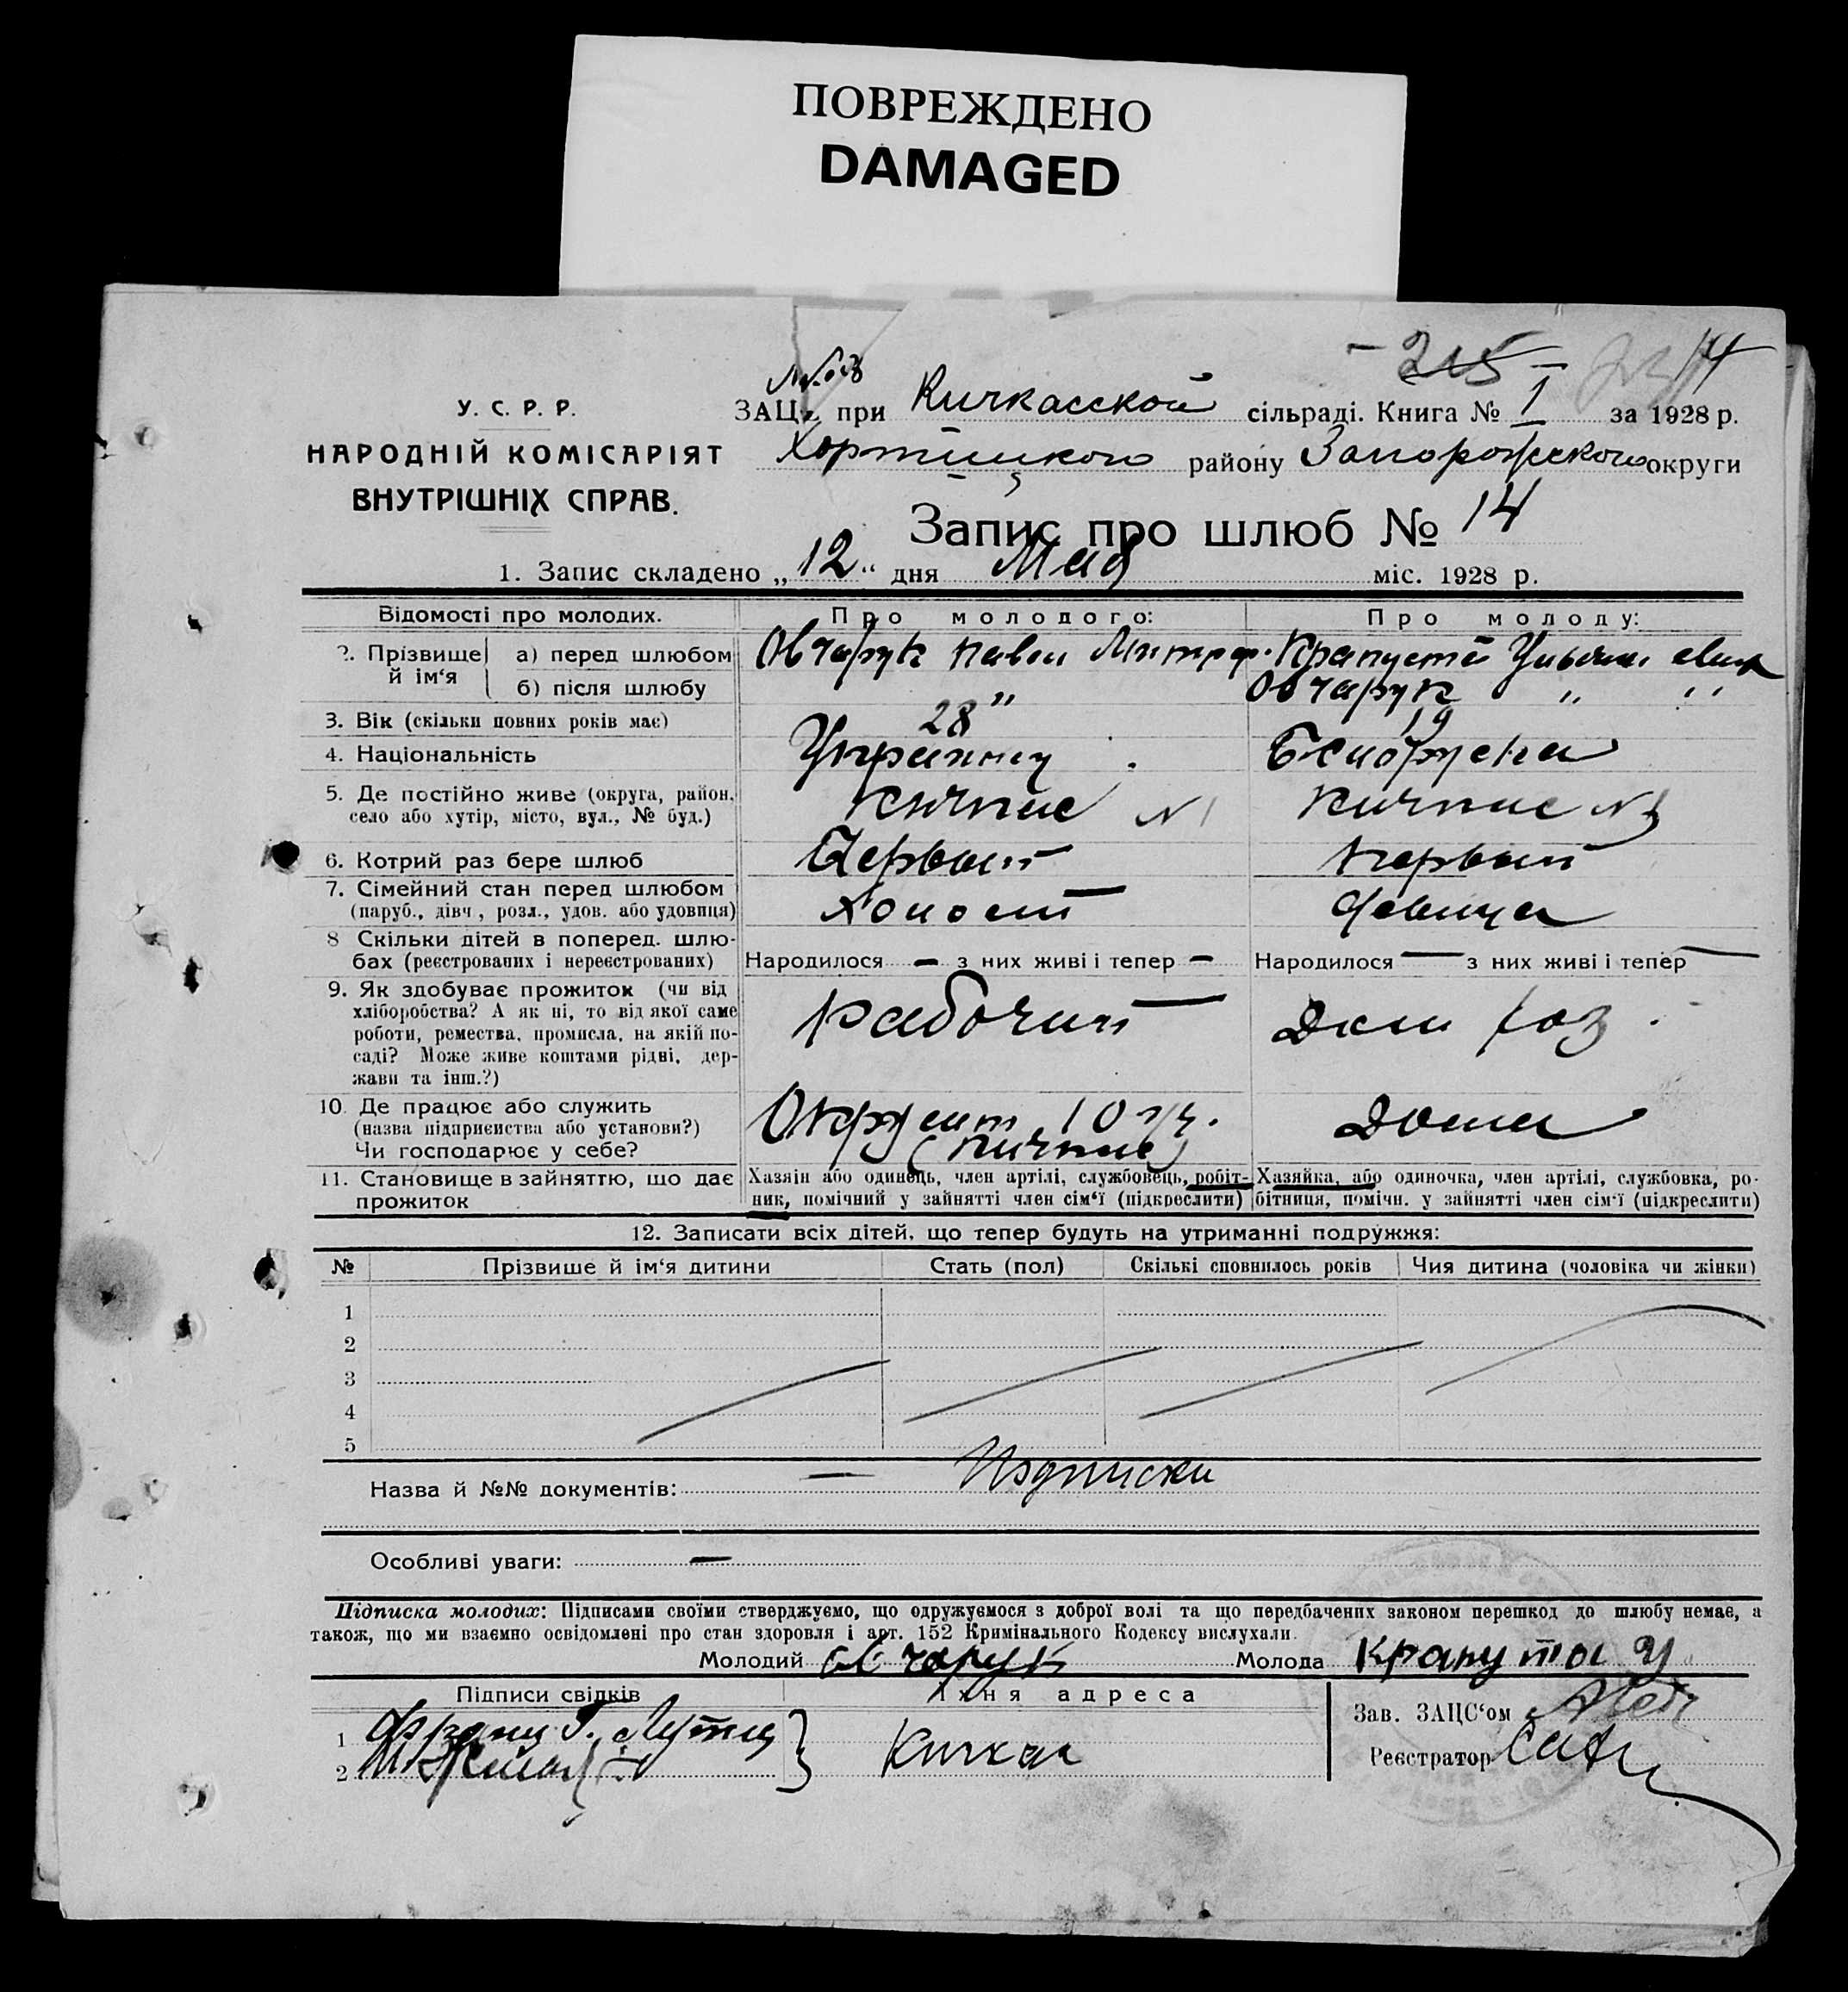 ПОВРЕЖДЕНО
DAMAGED
14
У. С. Р. Р.
НАРОДНІЙ КОМІСАРІЯТ
ВНУТРІШНІХ СПРАВ.
ЗАЦС при Кичкасской сільраді. Книга № 1 за 1928 р.
Хортицкого району Запорожского округи
Запис про шлюб № 14
1. Запис складено „12“ дня Мая міс. 1928 р.
Відомості про молодих. Про молодого: Про молоду:
2. Прізвище й ім‘я а) перед шлюбом Овчарук Павел Митроф.
б) після шлюбу " Овчарук " "
3. Вік (скільки повних років має) 28 19
4. Національність Украинец Белорусска
5. Де постійно живе (округа, район, Кичкас №1 Кичкас №
село або хутір, місто, вул., № буд.)
6. Котрий раз бере шлюб Первый Первый
7. Сімейний стан перед шлюбом Холост Девица
(паруб., дівч., розл., удов. або удовиця)
8 Скільки дітей в поперед. шлю-
бах (реєстрованих і нереєстрованих) Народилося — з них живі і тепер — Народилося — з них живі і тепер —
9. Як здобуває прожиток (чи від
хліборобства? А як ні, то від якої саме
роботи, ремества, промисла, на якій по- рабочий Дом хоз.
саді? Може живе коштами рідні, дер-
жави та інш.?)
10. Де працює або служить 10 уч. Дома
(назва підприємства або установи?) (Кичкас)
Чи господарює у себе?
11. Становище в зайняттю, що дає Хазяїн або одинець, член артілі, службовець, робіт- Хазяйка, або одиночка, член артілі, службовка, ро-
прожиток ник, помічний у зайнятті член сім‘ї (підкреслити) бітниця, помічн. у зайнятті член сім‘ї (підкреслити)
12. Записати всіх дітей, що тепер будуть на утриманні подружжя:
№ Прізвише й ім‘я дитини Стать (пол) Скількі сповнилось років Чия дитина (чоловіка чи жінки)
1
2
3
4
5
Назва й №№ документів: — Подписки
Особливі уваги: —
Підписка молодих: Підписами своїми стверджуємо, що одружуємося з доброї волі та що передбачених законом перешкод до шлюбу немає, а
також, що ми взаємно освідомлені про стан здоровля і арт. 152 Кримінального Кодексу вислухали.
Молодий Овчарук Молода
Підписи свідків Їхня адреса Зав. ЗАЦС‘ом
1 Франц Г. Кичкас
2 Реєстратор